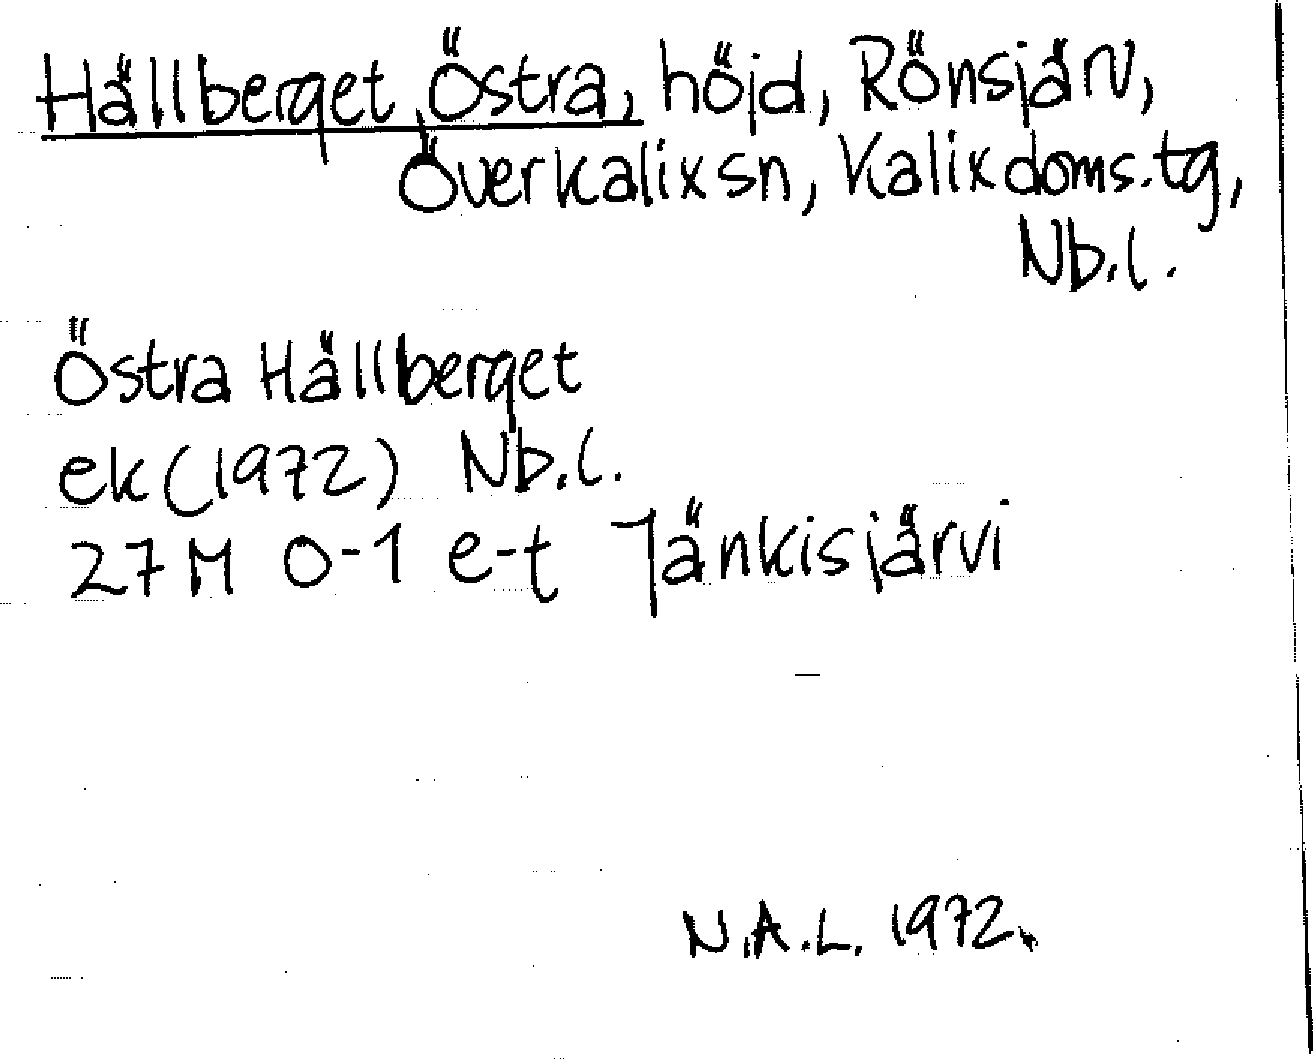 Hällberget, Östra, höjd, Rönsjärv,
Överkalix sn, Kalix doms.tg,
Nb.l.
Östra Hällberget
ek (1972) Nb.l.
27 M 0-1 e-t Jänkisjärvi
N.A.L. 1972.